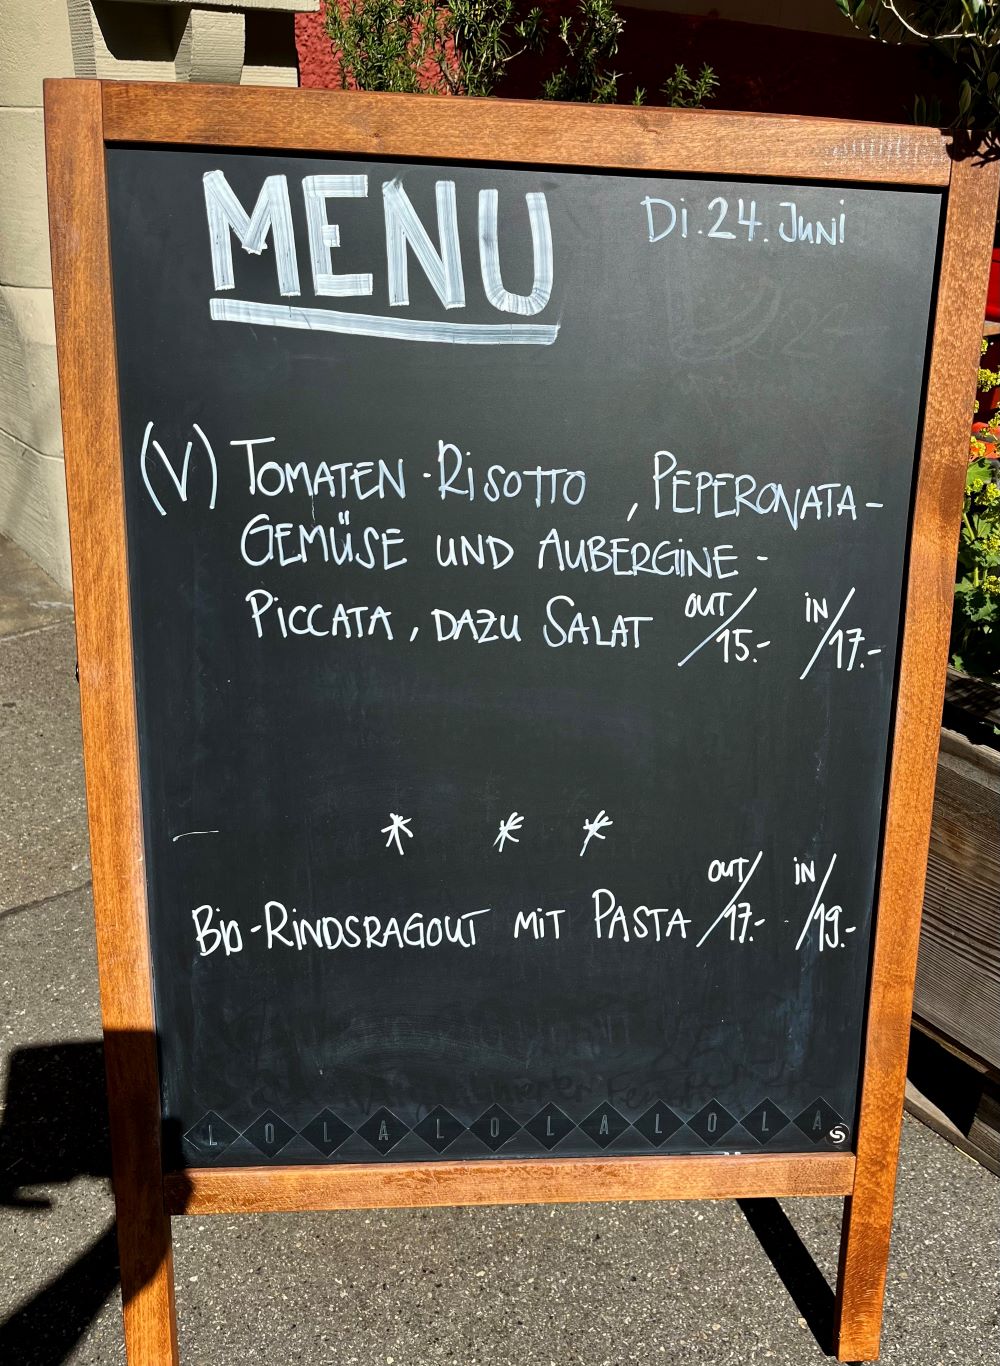 MENU
Di. 24. JUNI
(V) TOMATEN-RISOTTO, PEPERONATA-
GEMÜSE UND AUBERGINE-
PICCATA, DAZU SALAT OUT/15.- IN/17.-
* * *
BIO-RINDSRAGOUT MIT PASTA OUT/17.- IN/19.-
LOLALOLALOLA